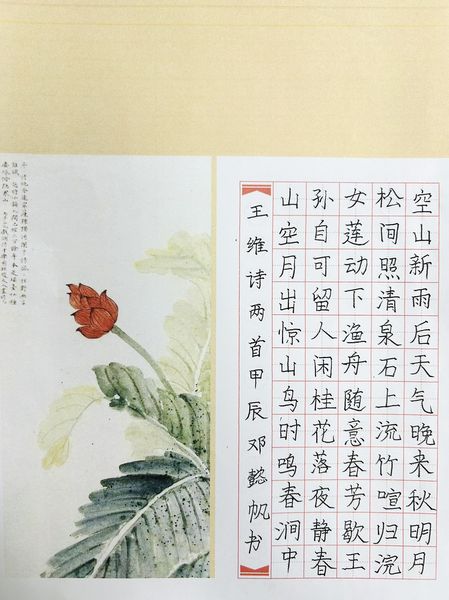 空山新雨后天气晚来秋明月
松间照清泉石上流竹喧归浣
女莲动下渔舟随意春芳歇王
孙自可留人闲桂花落夜静春
山空月出惊山鸟时鸣春涧中
王维诗两首甲辰邓懿帆书